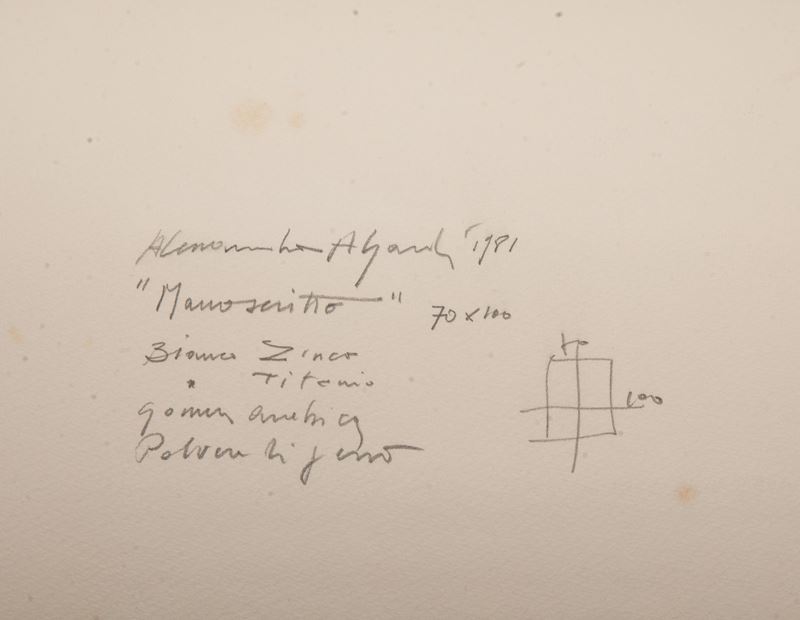 Alessandro Algardi 1981
"Manoscritto" 70x100
Bianco Zinco
" Titanio
gomma arabica
Polvere di gesso
70
100